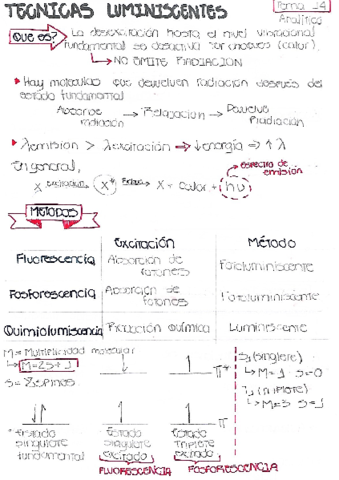 TECNICAS LUMINISCENTES
Tema 14
Analítica
QUÉ ES?
La desexcitación hasta el nivel vibracional
fundamental se desactiva por choques (calor).
↳ NO EMITE RADIACIÓN
Hay moleculas que devuelven radiación después del
estado fundamental
Absorbe radiación → Relajacion → Devuelve Radiación
λemision > λexcitación → ↓energía → ↑λ
En general,
espectro de emisión
X → X* → X + calor + hν
METODOS
Excitación Método
Fluorescencia Absorcion de fotones Fotoluminiscente
Fosforescencia Absorcion de fotones Fotoluminiscente
Quimioluminiscencia Reacción química Luminiscente
M = Multiplicidad molecular
↳ M=2S+1
S = Σspines
π*
π
S₁ (singlete)
↳ M=1 S=0
T₁ (triplete)
↳ M=3 S=1
Estado singlete fundamental
Estado singlete excitado
Estado triplete excitado
FLUORESCENCIA FOSFORESCENCIA